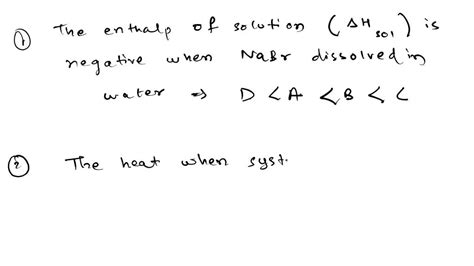 ① The enthalp of solution (ΔH sol) is
negative when NaBr dissolved in
water ⇒ D < A < B < C
② The heat when syst.